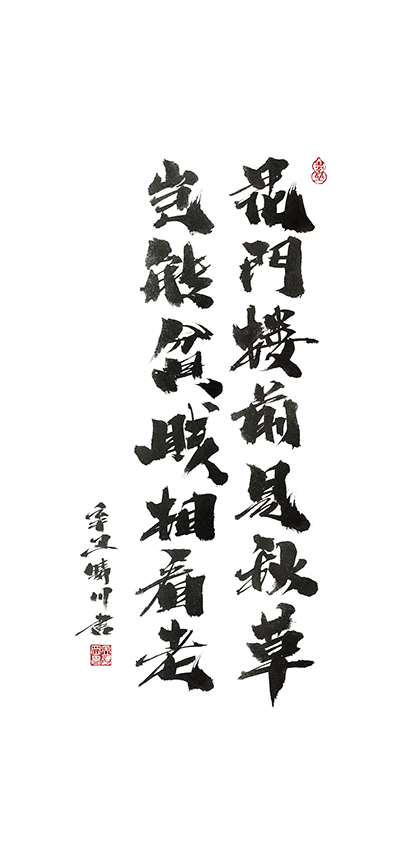 花門楼前見秋草
豈能貧賤相看老
辛丑晴川書